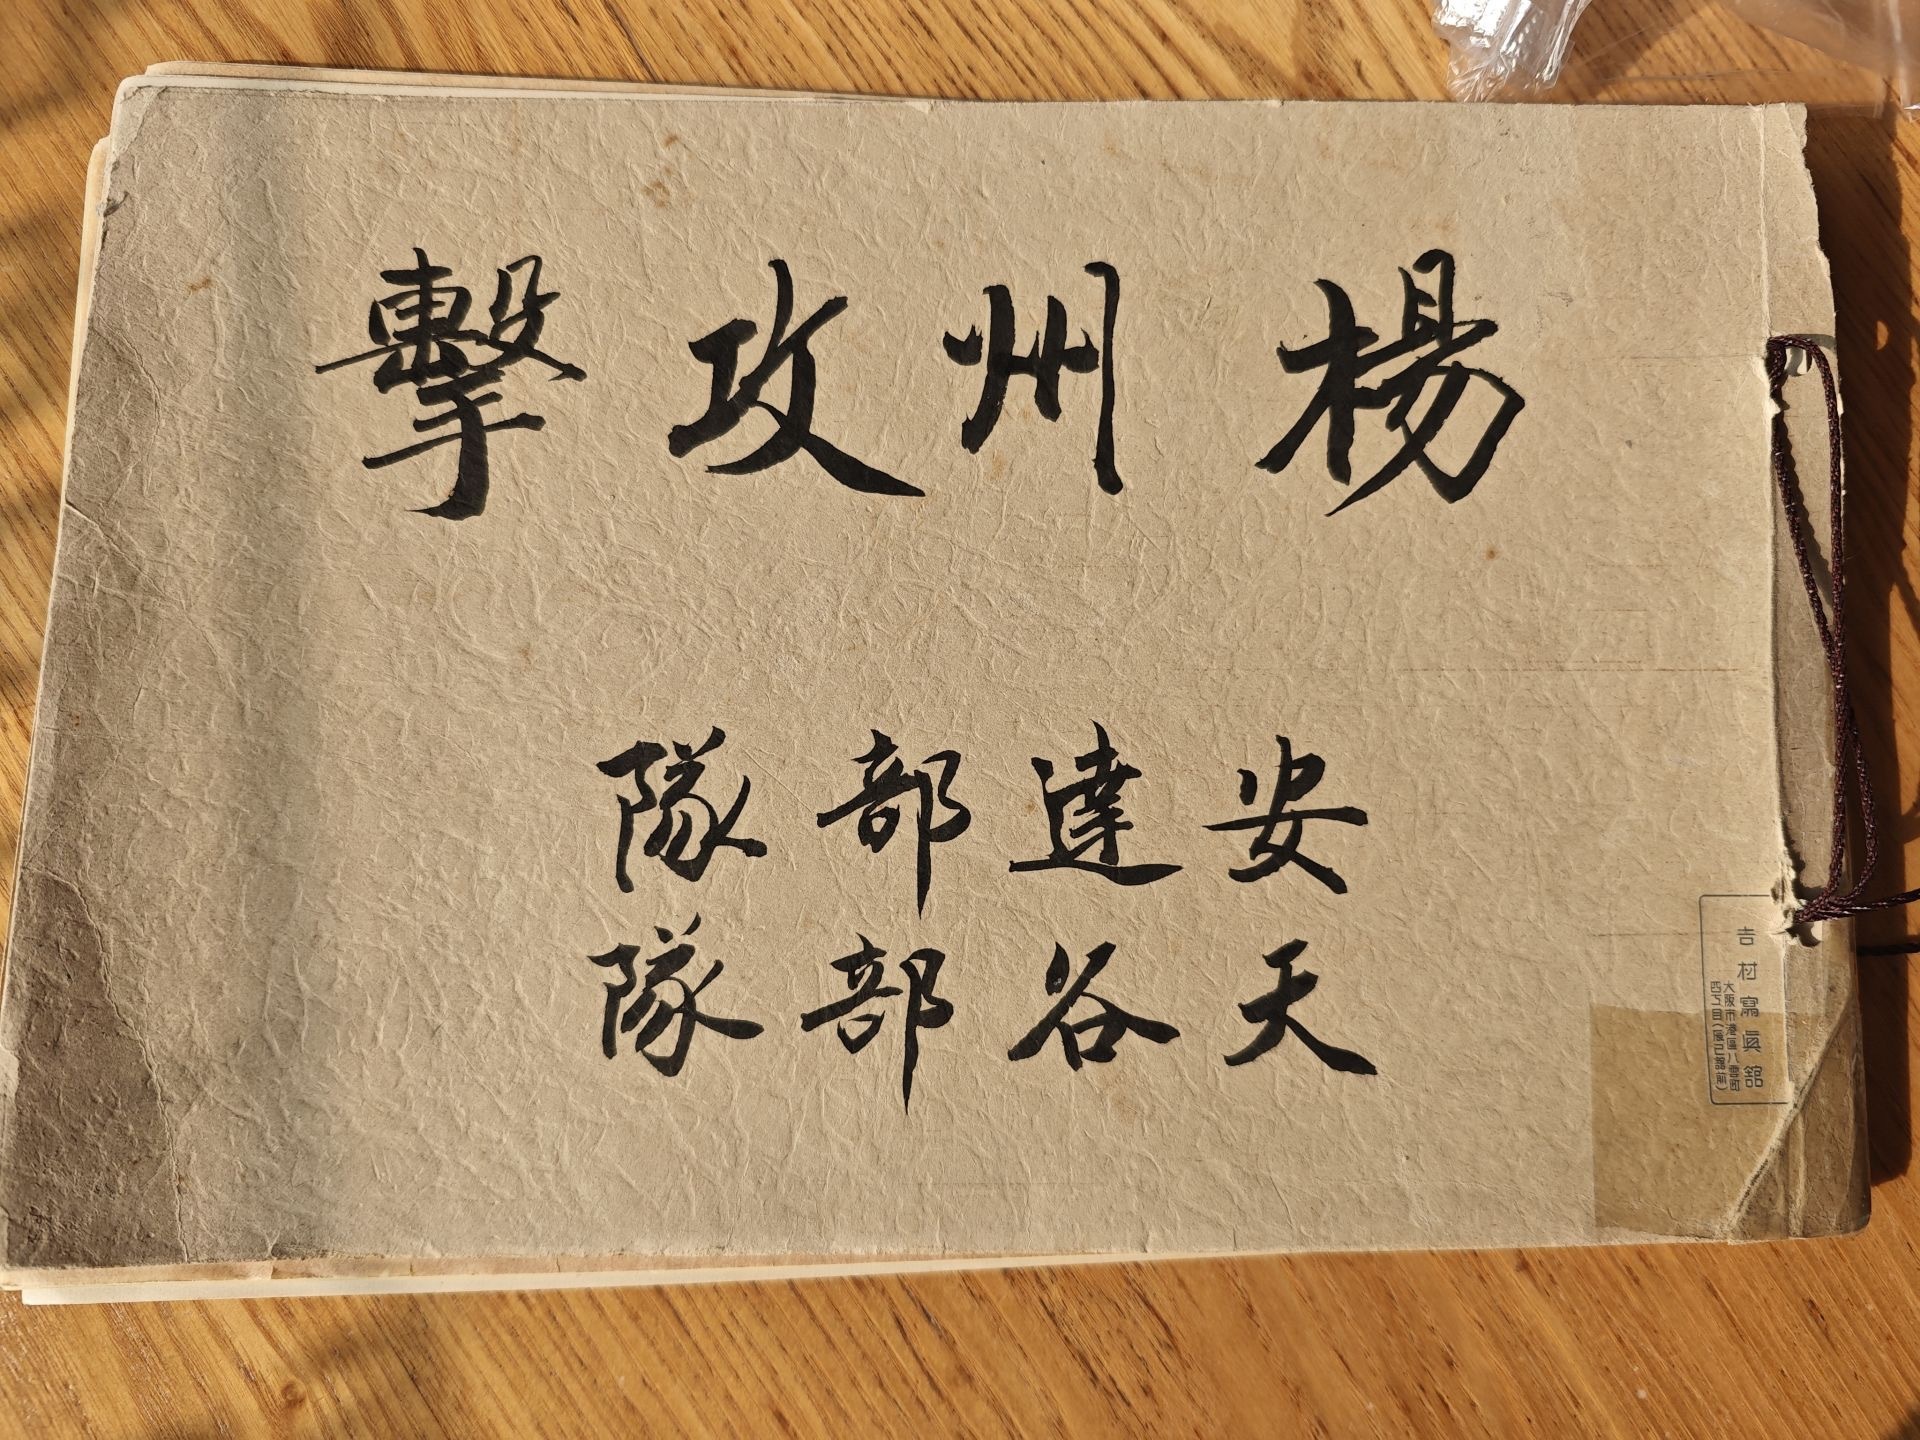 楊州攻擊
安達部隊
天谷部隊
吉村寫眞舘
大阪市港區八雲町
四丁目